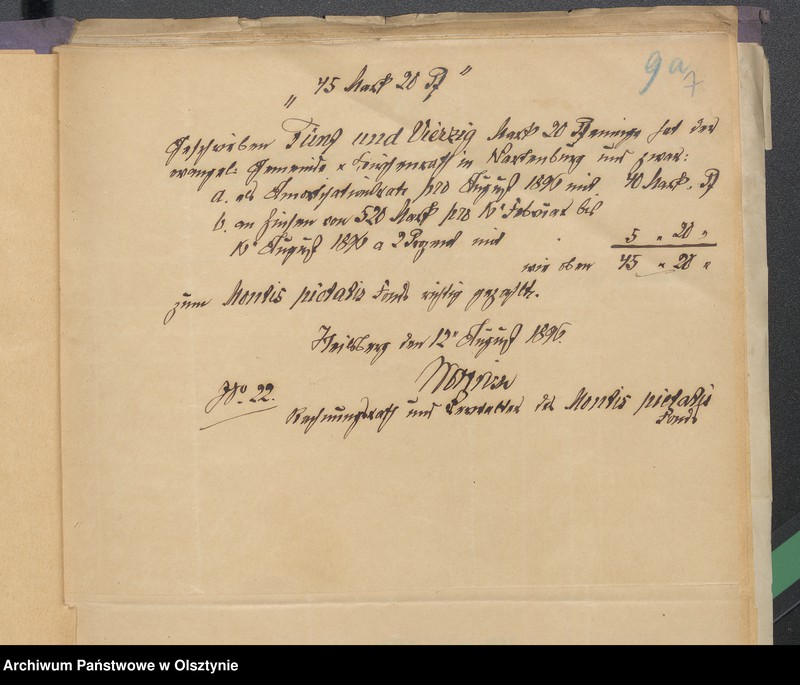 9a
7
„ 45 Mark 20 Pf "
Geschrieben Fünf und Vierzig Mark 20 Pfennige hat der
evangel: Gemeinde Kirchenrath in Wartenburg und zwar:
a. als Amortisationsrate pro August 1890 mit 40 Mark. Pf
b. an Zinsen von 520 Mark pro Februar bis
August 1890 a 2 Prozent mit 5 „ 20 „
wie oben 45 „ 20 „
zum Montis pietatis Fonds richtig gezahlt.
Heilsberg den 12 August 1890.
No. 22.
Rechnungsrath und Verwalter des Montis pietatis
Fonds
Archiwum Państwowe w Olsztynie